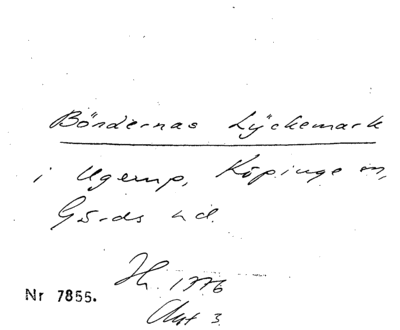 Böndernas Lyckemark
i Ugerup, Köpinge sn,
Gärds hd.
1776
Nr 7855.
Akt 3